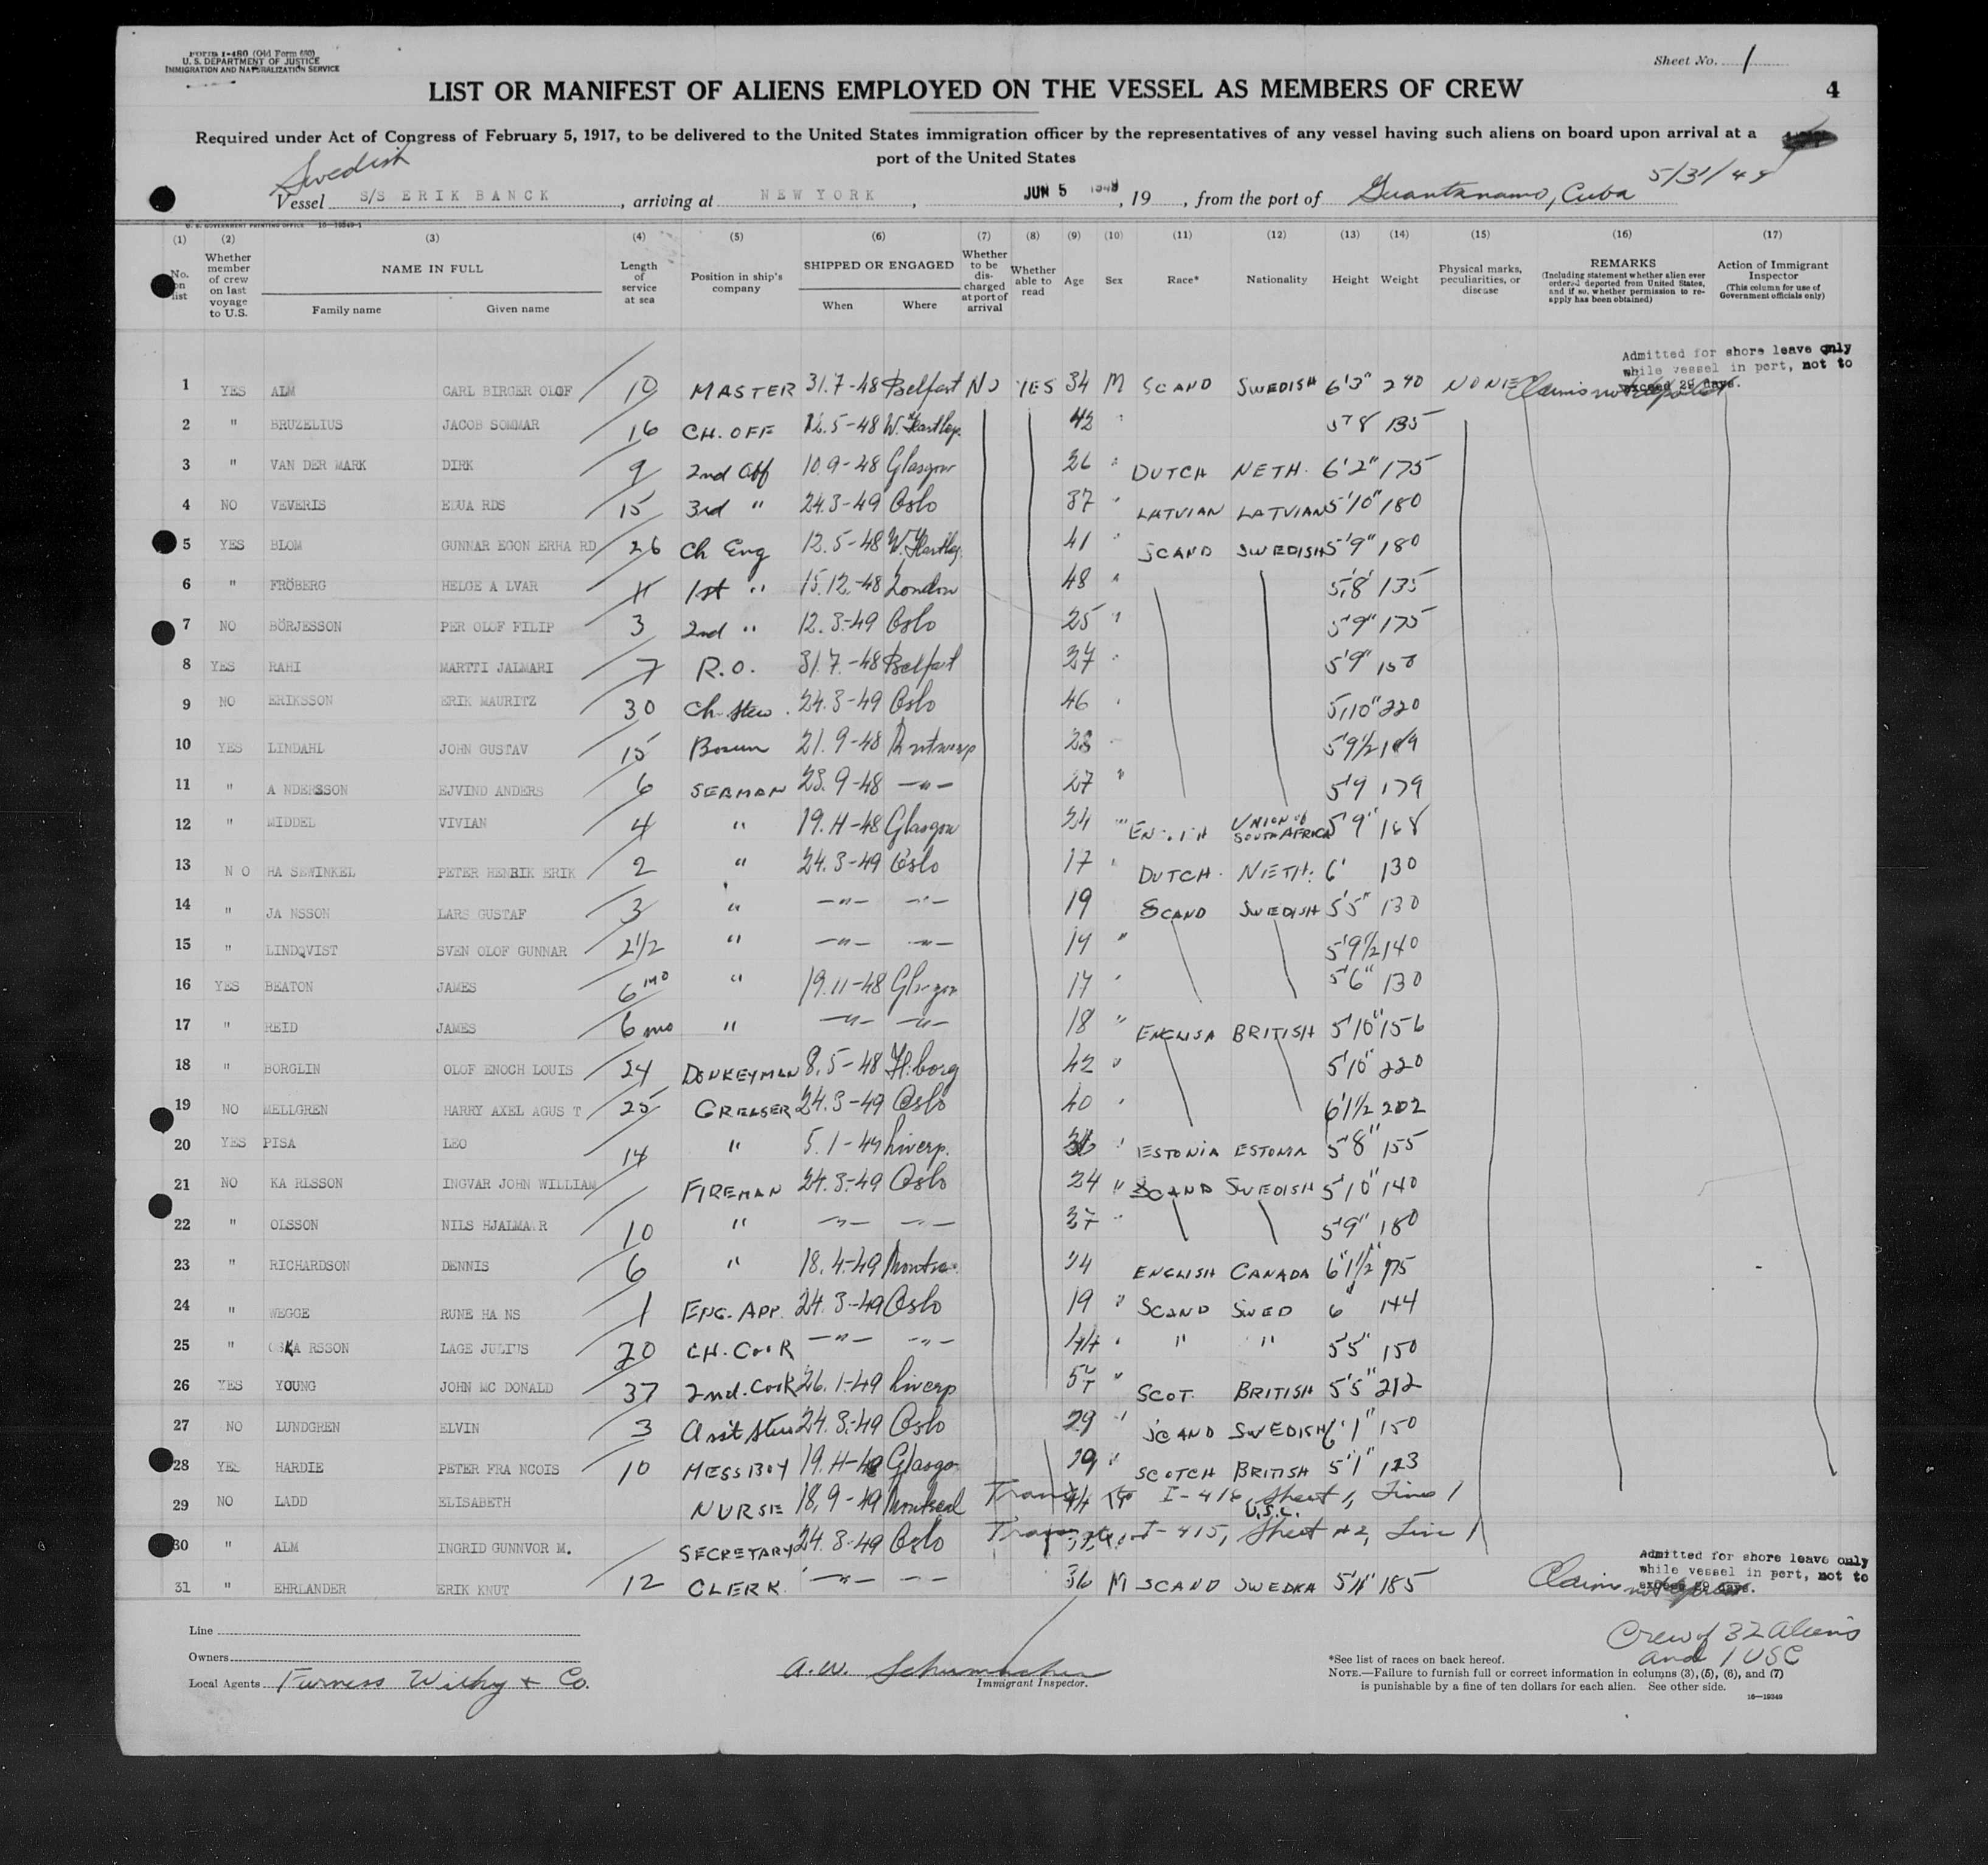 FORM I-480 (Old Form 680)
U. S. DEPARTMENT OF JUSTICE
IMMIGRATION AND NATURALIZATION SERVICE
Sheet No. 1
LIST OR MANIFEST OF ALIENS EMPLOYED ON THE VESSEL AS MEMBERS OF CREW
4
Required under Act of Congress of February 5, 1917, to be delivered to the United States immigration officer by the representatives of any vessel having such aliens on board upon arrival at a
port of the United States
Swedish
Vessel S/S ERIK BANCK, arriving at NEW YORK, JUN 5 1949, 19, from the port of Guantanamo, Cuba 5/31/49
U. S. GOVERNMENT PRINTING OFFICE 16-19349-1
(1) (2) (3) (4) (5) (6) (7) (8) (9) (10) (11) (12) (13) (14) (15) (16) (17)
No. on list
Whether member of crew on last voyage to U.S.
NAME IN FULL
Family name
Given name
Length of service at sea
Position in ship's company
SHIPPED OR ENGAGED
When
Where
Whether to be discharged at port of arrival
Whether able to read
Age
Sex
Race*
Nationality
Height
Weight
Physical marks, peculiarities, or disease
REMARKS
(Including statement whether alien ever ordered deported from United States, and if so, whether permission to reapply has been obtained)
Action of Immigrant Inspector
(This column for use of Government officials only)
Admitted for shore leave only
while vessel in port, not to
exceed 29 days.
1 YES ALM CARL BIRGER OLOF 10 MASTER 31.7-48 Belfast NO YES 34 M SCAND SWEDISH 6'3" 240 NONE
2 " BRUZELIUS JACOB SOMMAR 16 CH. OFF 12.5-48 W. Hartlep. 42 " 5'8 135
3 " VAN DER MARK DIRK 9 2nd Off 10.9-48 Glasgow 26 " DUTCH NETH. 6'2" 175
4 NO VEVERIS EDUA RDS 15 3rd " 24.3-49 Oslo 37 " LATVIAN LATVIAN 5'10" 180
5 YES BLOM GUNNAR EGON ERHA RD 26 Ch Eng 12.5-48 W. Hartlep. 41 " SCAND SWEDISH 5'9" 180
6 " FRÖBERG HELGE A LVAR 11 1st " 15.12.-48 London 48 " 5'8' 135
7 NO BÖRJESSON PER OLOF FILIP 3 2nd " 12.3-49 Oslo 25 " 5'9" 175
8 YES RAHI MARTTI JALMARI 7 R.O. 31.7.-48 Belfast 5'9"
9 NO ERIKSSON ERIK MAURITZ 30 Ch. Stew. 24.3-49 Oslo 46 " 5'10" 220
10 YES LINDAHL JOHN GUSTAV 15 Bosun 21.9-48 Antwerp 28 5'9½
11 " A NDERSSON EJVIND ANDERS 6 SEAMAN 23.9-48 —"— 27 " 5'9 179
12 " MIDDEL VIVIAN 4 " 19.11-48 Glasgow " UNION of SOUTH AFRICA 5'9" 168
13 N O HA SEWINKEL PETER HENRIK ERIK 2 " 24.3-49 Oslo 17 " DUTCH. NETH. 6' 130
14 " JA NSSON LARS GUSTAF 3 " —"— —"— 19 SCAND SWEDISH 5'5" 130
15 " LINDQVIST SVEN OLOF GUNNAR 2½ " —"— —"— " 5'9½ 140
16 YES BEATON JAMES 6 mo " 19.11-48 Glasgow " 5'6" 130
17 " REID JAMES 6 mo " —"— —"— 18 " ENGLISH BRITISH 5'10" 156
18 " BORGLIN OLOF ENOCH LOUIS 24 DONKEYMAN 8.5-48 H:borg 42 " 5'10" 220
19 NO MELLGREN HARRY AXEL AGUS T 25 GREASER 24.3-49 Oslo 40 " 6'1½ 202
20 YES PISA LEO 14 " 5.1-49 Liverp. 36 " ESTONIA ESTONIA 5'8" 155
21 NO KA RLSSON INGVAR JOHN WILLIAM FIREMAN 24.3.-49 Oslo 24 " SCAND SWEDISH 5'10" 140
22 " OLSSON NILS HJALMA R 10 " —"— —"— 37 " 5'9" 180
23 " RICHARDSON DENNIS 6 " 18.4.-49 Montrea. 24 ENGLISH CANADA 6'1½" 175
24 " WEGGE RUNE HA NS 1 ENG. APP. 24.3-49 Oslo 19 " SCAND SWED 6 144
25 " OSKA RSSON LAGE JULIUS 20 CH. COOK —"— —"— 44 " " " 5'5" 150
26 YES YOUNG JOHN MC DONALD 37 2nd. Cook 26.1-49 Liverp " SCOT. BRITISH 5'5" 212
27 NO LUNDGREN ELVIN 3 Asst Stew 24.3.-49 Oslo 29 " SCAND SWEDISH 6'1" 150
28 YES HARDIE PETER FRA NCOIS 10 MESSBOY 19.11-48 Glasgo " SCOTCH BRITISH 5'1" 123
29 NO LADD ELISABETH NURSE 18.9-49 Montreal 44 Trans to I-416, Sheet 1, Line 1
U.S.C.
30 " ALM INGRID GUNNVOR M. SECRETARY 24.3-49 Oslo Trans to I-415, Sheet #2, Line 1
31 " EHRLANDER ERIK KNUT 12 CLERK —"— —"— 36 M SCAND 5'11" 185
Admitted for shore leave only
while vessel in port, not to
exceed 29 days.
Crew of 32 aliens
and 1 USC
Line
Owners
Local Agents Furness Withy & Co.
A. W. Schumacher
Immigrant Inspector.
*See list of races on back hereof.
NOTE.—Failure to furnish full or correct information in columns (3), (5), (6), and (7)
is punishable by a fine of ten dollars for each alien. See other side.
16—19349